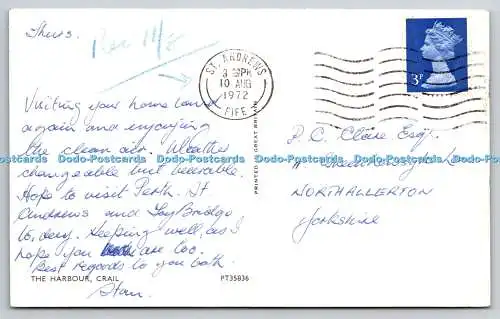 Thurs.
Rec 11/8
ST. ANDREWS
3 PM
10 AUG
1972
FIFE
3P
Visiting your home land
again and enjoying
the clean air. Weather
changeable but bearable.
Hope to visit Perth. St
Andrews and Tay Bridge
to-day. Keeping well, as I
hope you are too.
Best regards to you both
Stan.
THE HARBOUR, CRAIL
PT35836
PRINTED IN GREAT BRITAIN
Esq.
NORTHALLERTON
Yorkshire
Dodo-Postcards Dodo-Postcards Dodo-Postcards Dodo-Postcards Dodo-Postcards Dodo-Postcards